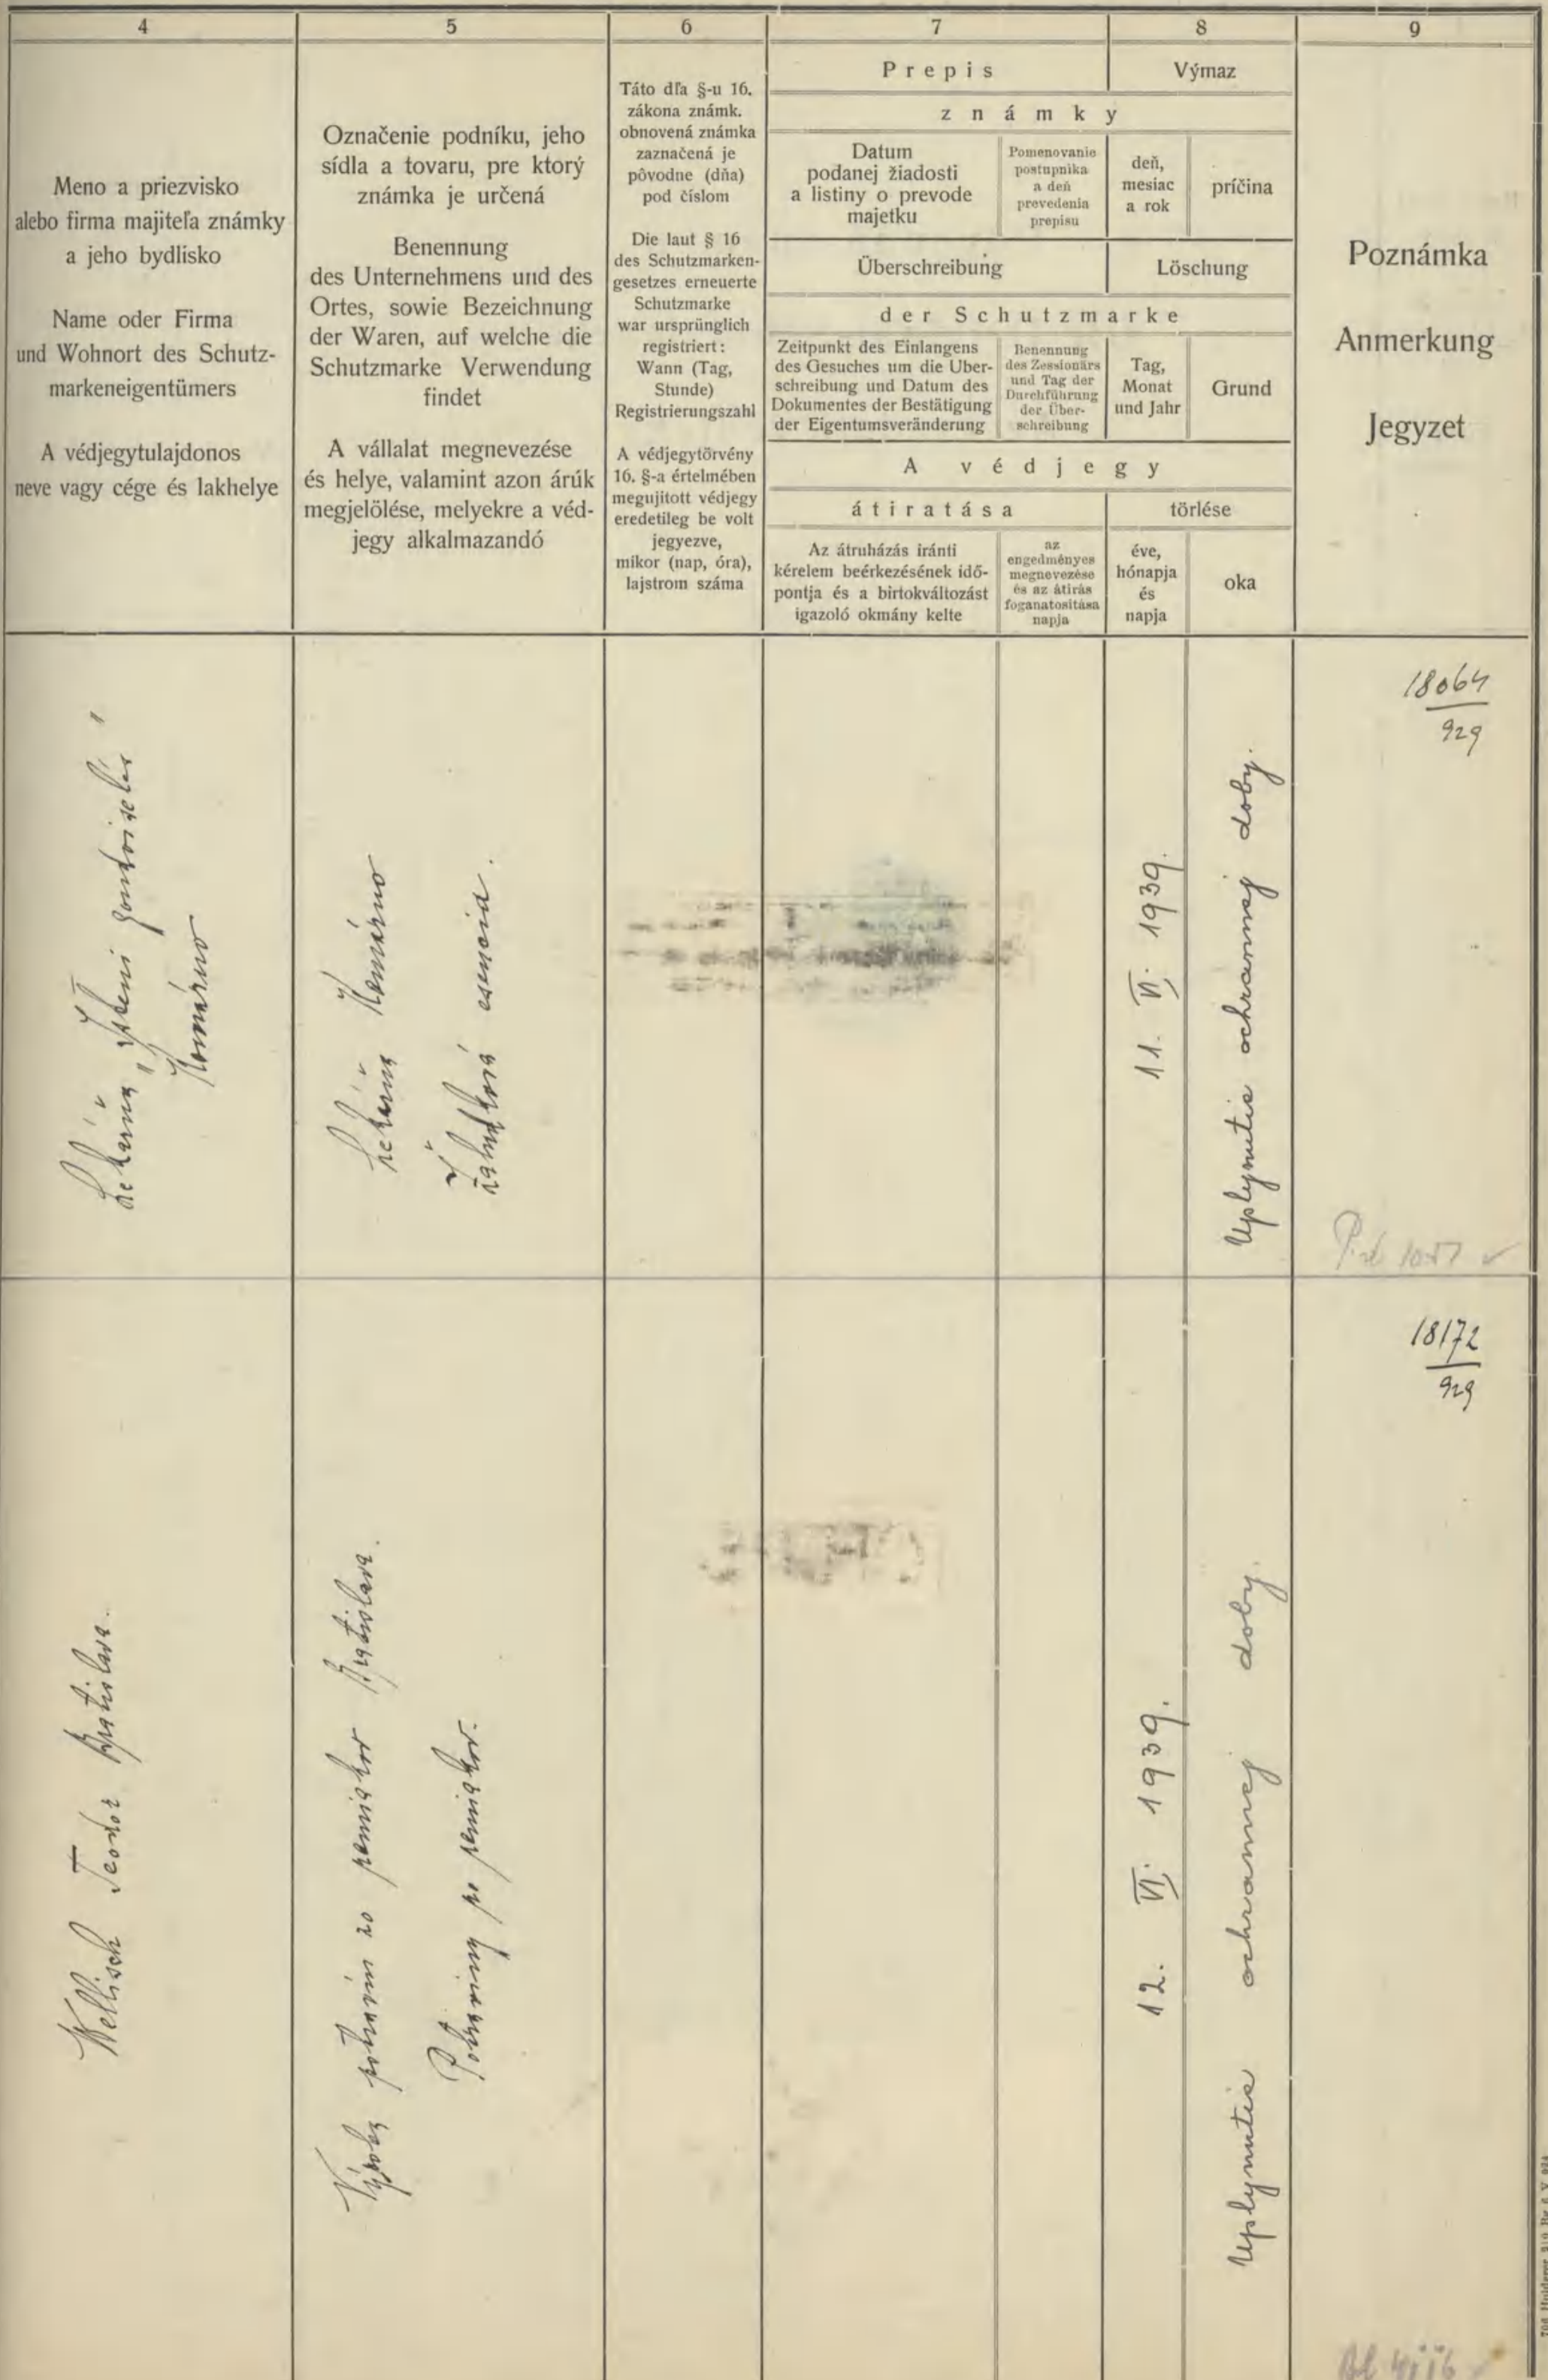 4
5
6
7
8
9
Meno a priezvisko
alebo firma majiteľa známky
a jeho bydlisko
Name oder Firma
und Wohnort des Schutz-
markeneigentümers
A védjegytulajdonos
neve vagy cége és lakhelye
Označenie podníku, jeho
sídla a tovaru, pre ktorý
známka je určená
Benennung
des Unternehmens und des
Ortes, sowie Bezeichnung
der Waren, auf welche die
Schutzmarke Verwendung
findet
A vállalat megnevezése
és helye, valamint azon árúk
megjelölése, melyekre a véd-
jegy alkalmazandó
Táto dľa §-u 16.
zákona známk.
obnovená známka
zaznačená je
pôvodne (dňa)
pod číslom
Die laut § 16
des Schutzmarken-
gesetzes erneuerte
Schutzmarke
war ursprünglich
registriert:
Wann (Tag,
Stunde)
Registrierungszahl
A védjegytörvény
16. §-a értelmében
megujitott védjegy
eredetileg be volt
jegyezve,
mikor (nap, óra),
lajstrom száma
Prepis
Výmaz
známky
Datum
podanej žiadosti
a listiny o prevode
majetku
Pomenovanie
postupnika
a deň
prevedenia
prepisu
deň,
mesiac
a rok
príčina
Überschreibung
Löschung
der Schutzmarke
Zeitpunkt des Einlangens
des Gesuches um die Über-
schreibung und Datum des
Dokumentes der Bestätigung
der Eigentumsveränderung
Benennung
des Zessionärs
und Tag der
Durchführung
der Über-
schreibung
Tag,
Monat
und Jahr
Grund
A védjegy
átiratása
törlése
Az átruházás iránti
kérelem beérkezésének idő-
pontja és a birtokváltozást
igazoló okmány kelte
az
engedményes
megnevezése
és az átirás
foganatositása
napja
éve,
hónapja
és
napja
oka
Poznámka
Anmerkung
Jegyzet
Lekáreň „Isteni gondviselés"
Komárno
Lekáreň Komárno
Žalúdková esencia.
11. VI. 1939.
Uplynutie ochrannej doby.
18064
929
Wellisch Teodor Bratislava.
Výroba potravín zo pernikov Bratislava.
12. VI. 1939.
Uplynutie ochrannej doby.
18172
929